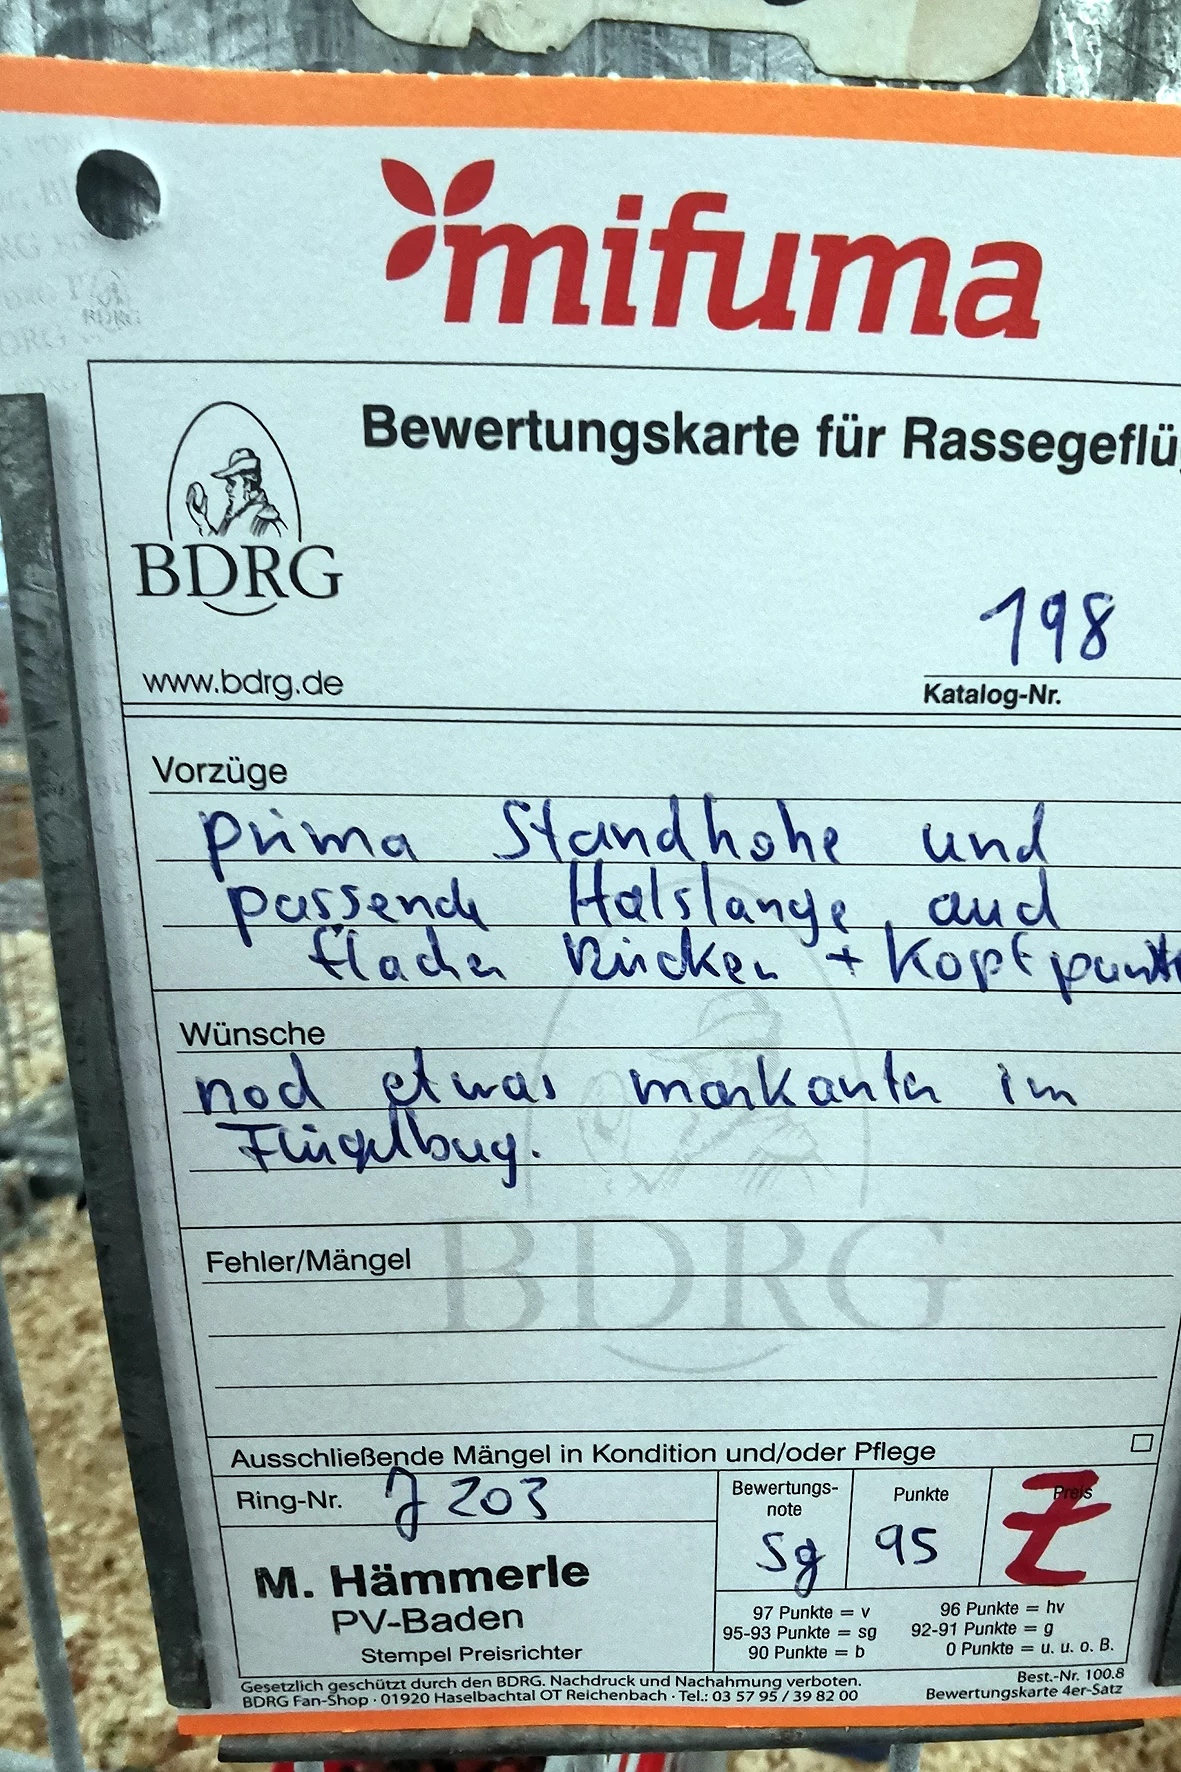 mifuma
Bewertungskarte für Rassegeflü
BDRG
198
www.bdrg.de
Katalog-Nr.
Vorzüge
prima Standhohe und
passende Halslange, auch
flacher Rücken + Kopfpunkte
Wünsche
noch etwas markanter im
Flügelbug.
BDRG
Fehler/Mängel
Ausschließende Mängel in Kondition und/oder Pflege
Ring-Nr. J 203
Bewertungs-
note
Punkte
Preis
sg
95
Z
M. Hämmerle
PV-Baden
Stempel Preisrichter
97 Punkte = v 96 Punkte = hv
95-93 Punkte = sg 92-91 Punkte = g
90 Punkte = b 0 Punkte = u. u. o. B.
Gesetzlich geschützt durch den BDRG. Nachdruck und Nachahmung verboten. Best.-Nr. 100.8
BDRG Fan-Shop · 01920 Haselbachtal OT Reichenbach · Tel.: 03 57 95 / 39 82 00 Bewertungskarte 4er-Satz